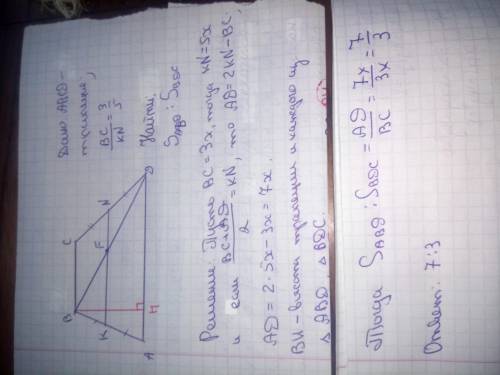 Дано: ABCD –
трапеция,
BC/KN = 3/5
Найти:
S_ABD : S_BDC
B
C
K
F
N
A
H
D
Решение: Пусть BC = 3x, тогда KN = 5x
и если (BC + AD)/2 = KN, то AD = 2KN – BC.
AD = 2 · 5x – 3x = 7x.
BH – высота трапеции и каждого из
Δ ABD, Δ BDC.
Тогда S_ABD : S_BDC = AD/BC = 7x/3x = 7/3
Ответ: 7:3